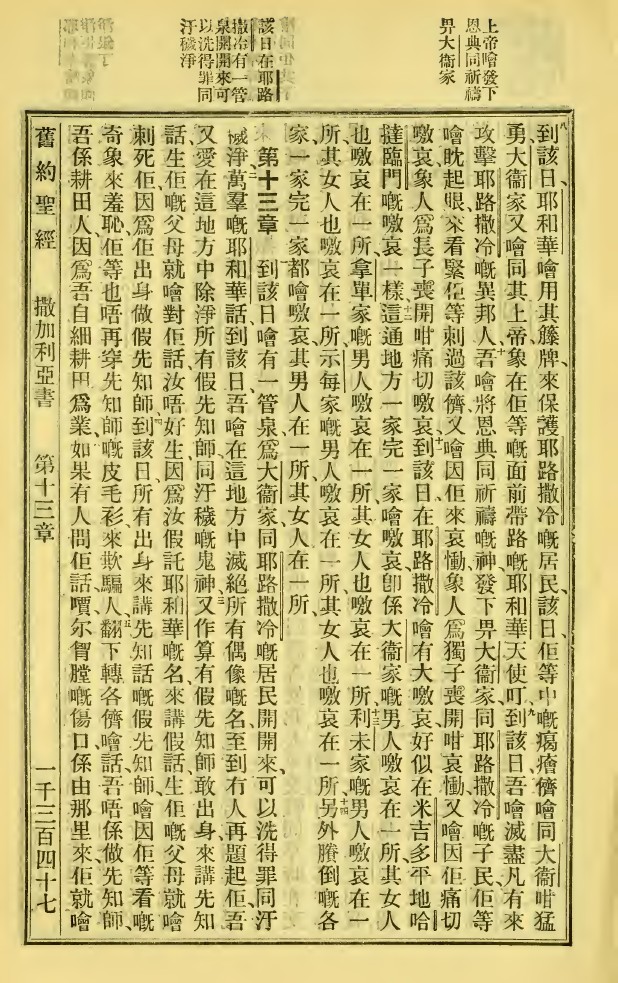 上帝噲發下
恩典同祈禱
畀大衞家
該日在耶路
撒冷有一管
泉開開來可
以洗得罪同
汙穢淨
到該日耶和華噲用其籐牌來保護耶路撒冷嘅居民該日佢等中嘅癘瘡儕噲同大衞咁猛
勇大衞家又噲同其上帝象在佢等嘅面前帶路嘅耶和華天使咁到該日吾噲滅盡凡有來
攻擊耶路撒冷嘅異邦人吾噲將恩典同祈禱嘅神發下畀大衞家同耶路撒冷嘅子民佢等
噲眈起眼來看緊佢等刺過該儕又噲因佢來哀慟象人爲獨子喪開咁哀慟又噲因佢痛切
噭哀象人爲長子喪開咁痛切噭哀到該日在耶路撒冷噲有大噭哀好似在米吉多平地哈
撻臨門嘅噭哀一樣這通地方一家完一家噲噭哀卽係大衞家嘅男人噭哀在一所其女人
也噭哀在一所拿單家嘅男人噭哀在一所其女人也噭哀在一所利未家嘅男人噭哀在一
所其女人也噭哀在一所示每家嘅男人噭哀在一所其女人也噭哀在一所另外賸倒嘅各
家一家完一家都噲噭哀其男人在一所其女人在一所
第十三章 到該日噲有一管泉爲大衞家同耶路撒冷嘅居民開開來可以洗得罪同汙
穢淨萬羣嘅耶和華話到該日吾噲在這地方中滅絕所有偶像嘅名至到冇人再題起佢吾
又愛在這地方中除淨所有假先知師同汙穢嘅鬼神又作算有假先知師敢出身來講先知
話生佢嘅父母就噲對佢話汝唔好生因爲汝假託耶和華嘅名來講假話生佢嘅父母就噲
刺死佢因爲佢出身做假先知師到該日所有出身來講先知話嘅假先知師噲因佢等看嘅
奇象來羞恥佢等也唔再穿先知師嘅皮毛衫來欺騙人翻下轉各儕噲話吾唔係做先知師
吾係耕田人因爲吾自細耕田爲業如果有人問佢話嚊尔胷膛嘅傷口係由那里來佢就噲
舊約聖經 撒加利亞書 第十三章 一千三百四十七